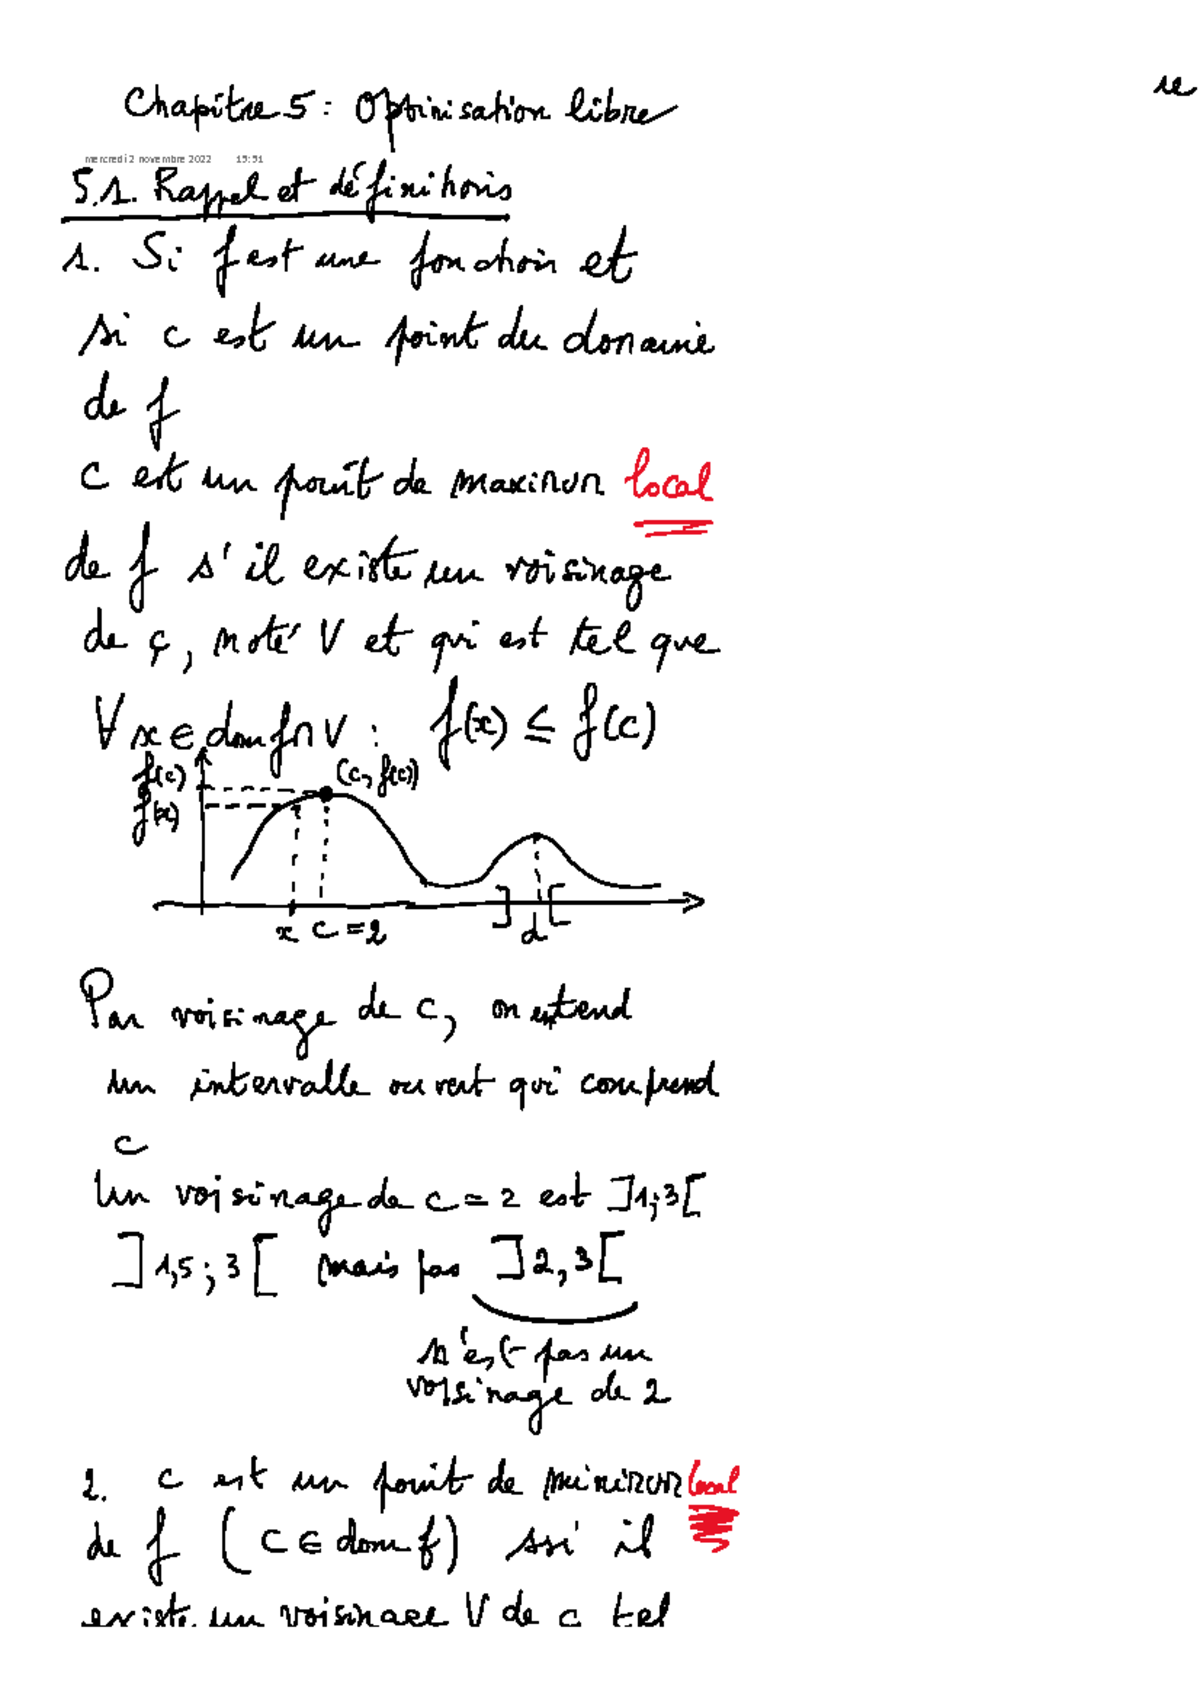 Chapitre 5 : Optimisation libre
mercredi 2 novembre 2022 15:31
5.1. Rappel et définitions
1. Si f est une fonction et
si c est un point du domaine
de f
c est un point de maximum local
de f s'il existe un voisinage
de c, noté V et qui est tel que
∀ x ∈ dom f ∩ V : f(x) ≤ f(c)
f(c) (c, f(c))
f(x)
x c = 2 ] d [
Par voisinage de c, on entend
un intervalle ouvert qui comprend
c
Un voisinage de c = 2 est ]1;3[
]1,5 ; 3[ mais pas ]2,3[
n'est pas un
voisinage de 2
2. c est un point de minimum local
de f (c ∈ dom f) ssi il
existe un voisinage V de c tel